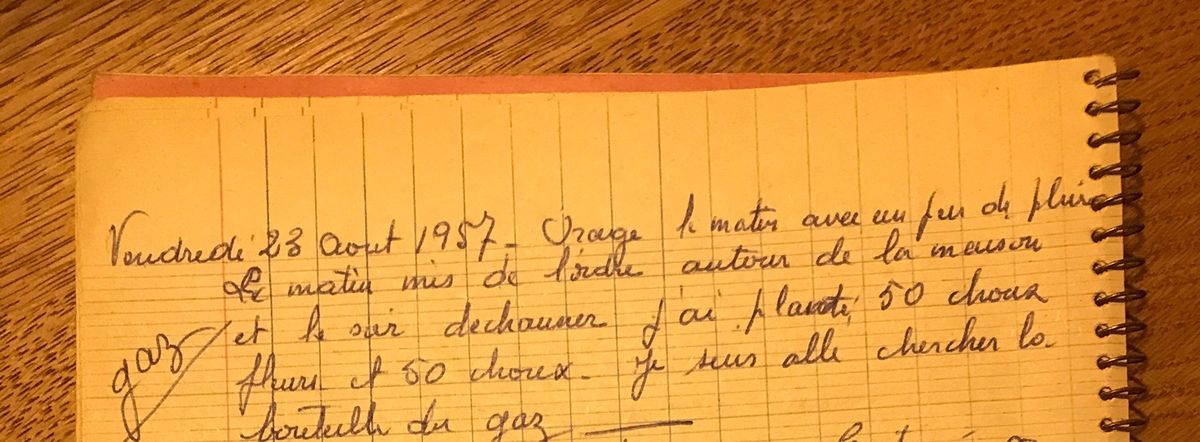 Vendredi 23 aout 1957 - Orage le matin avec un peu de pluie
Le matin mis de l'ordre autour de la maison
gaz
et le soir dechaumer j'ai planté 50 choux
fleurs et 50 choux - Je suis alle chercher la
bouteille du gaz